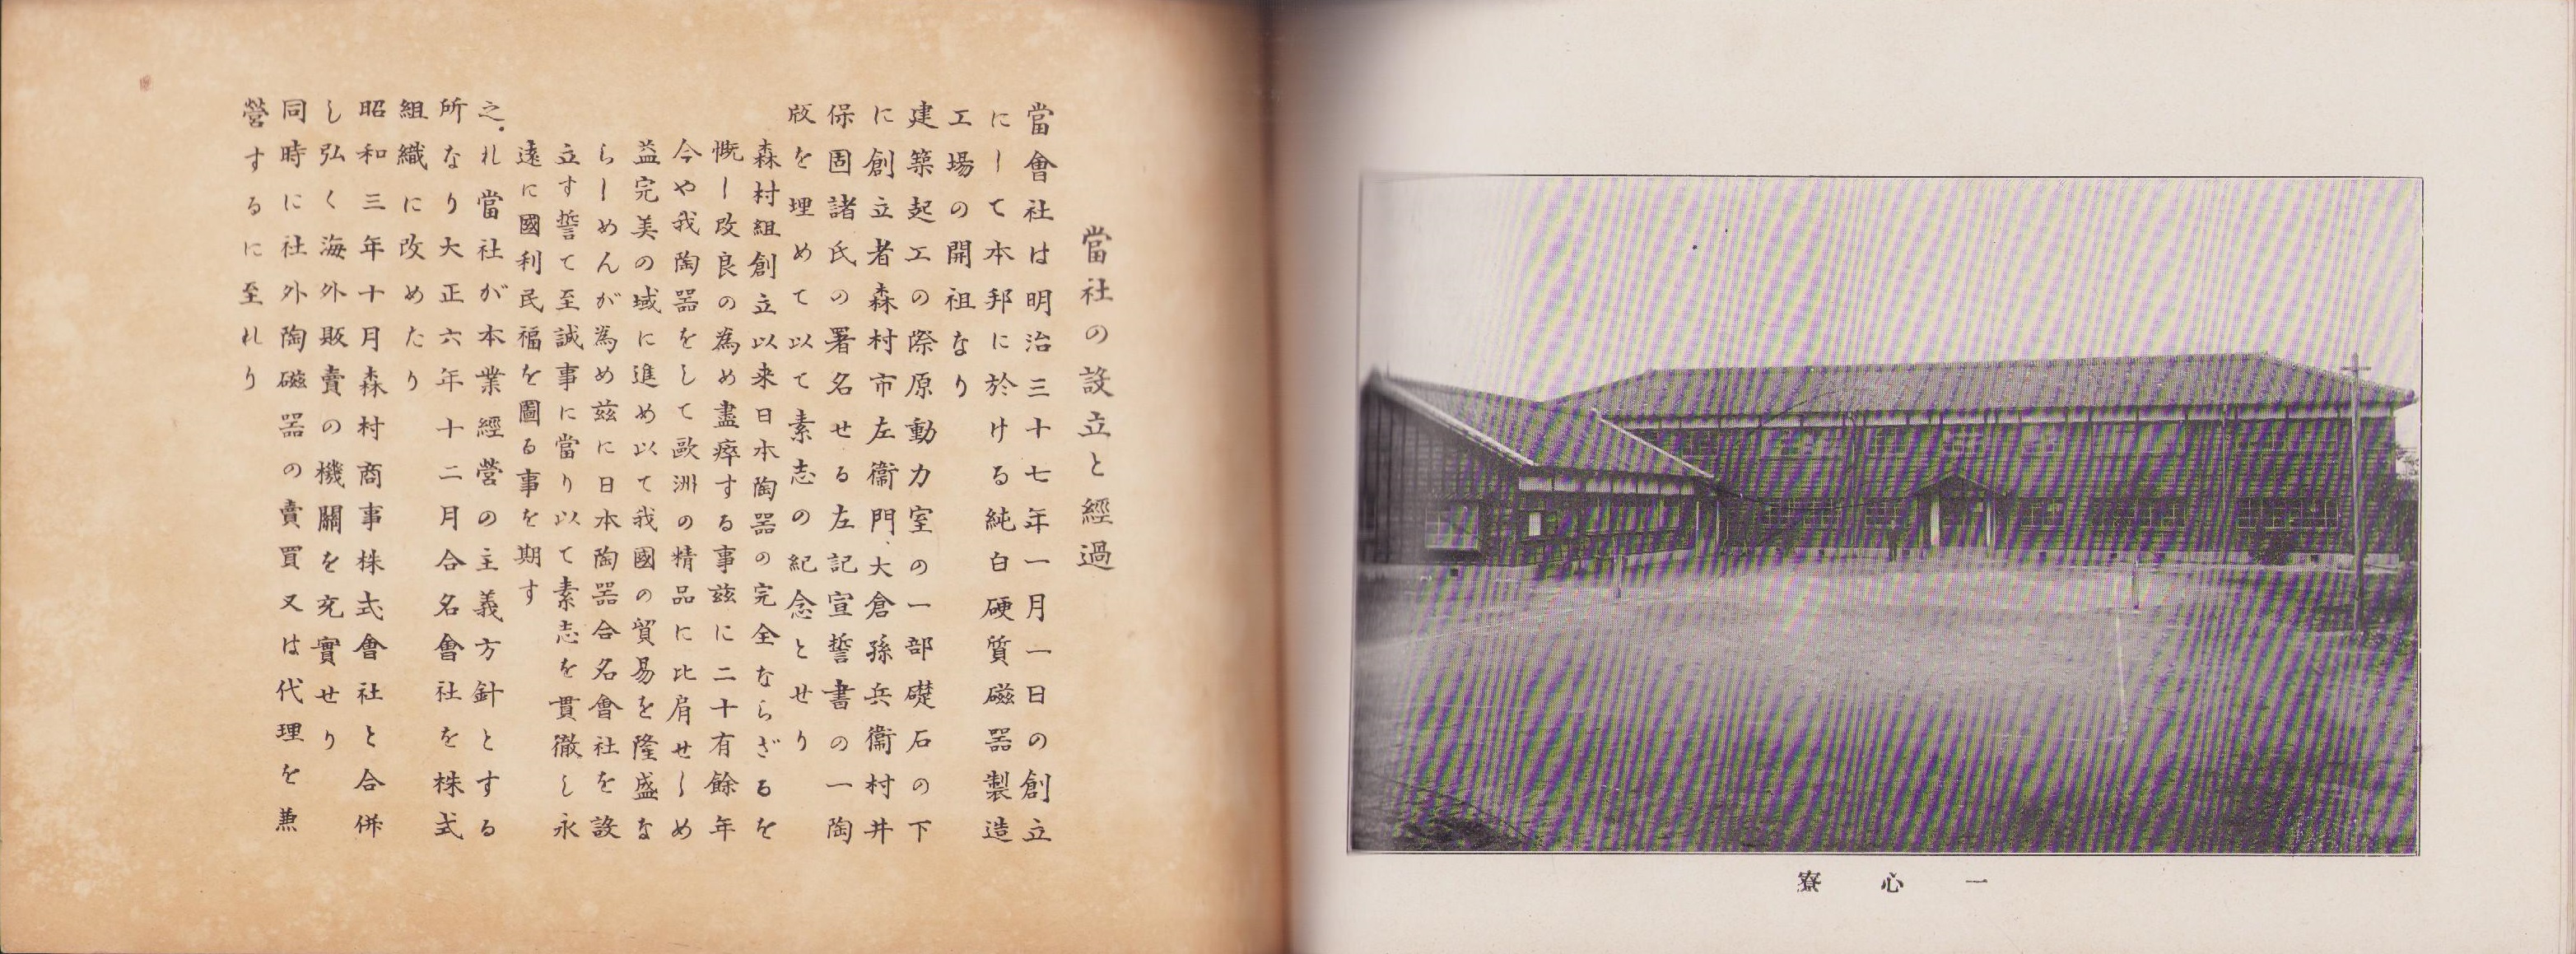 當社の設立と經過
當會社は明治三十七年一月一日の創立
にして本邦に於ける純白硬質磁器製造
工場の開祖なり
建築起工の際原動力室の一部礎石の下
に創立者森村市左衞門、大倉孫兵衞村井
保固諸氏の署名せる左記宣誓書の一陶
版を理めて以て素志の紀念とせり
森村組創立以来日本陶器の完全ならざるを
慨し改良の為め盡瘁する事茲に二十有餘年
今や我陶器をして歐洲の精品に比肩せしめ
益完美の域に進め以て我國の貿易を隆盛な
らしめんが為め茲に日本陶器合名會社を設
立す誓て至誠事に當り以て素志を貫徹し永
遠に國利民福を圖る事を期す
之れ當社が本業經營の主義方針とする
所なり大正六年十二月合名會社を株式
組織に改めたり
昭和三年十月森村商事株式會社と合併
し弘く海外販賣の機關を充實せり
同時に社外陶磁器の賣買又は代理を兼
營するに至れり
寮心一